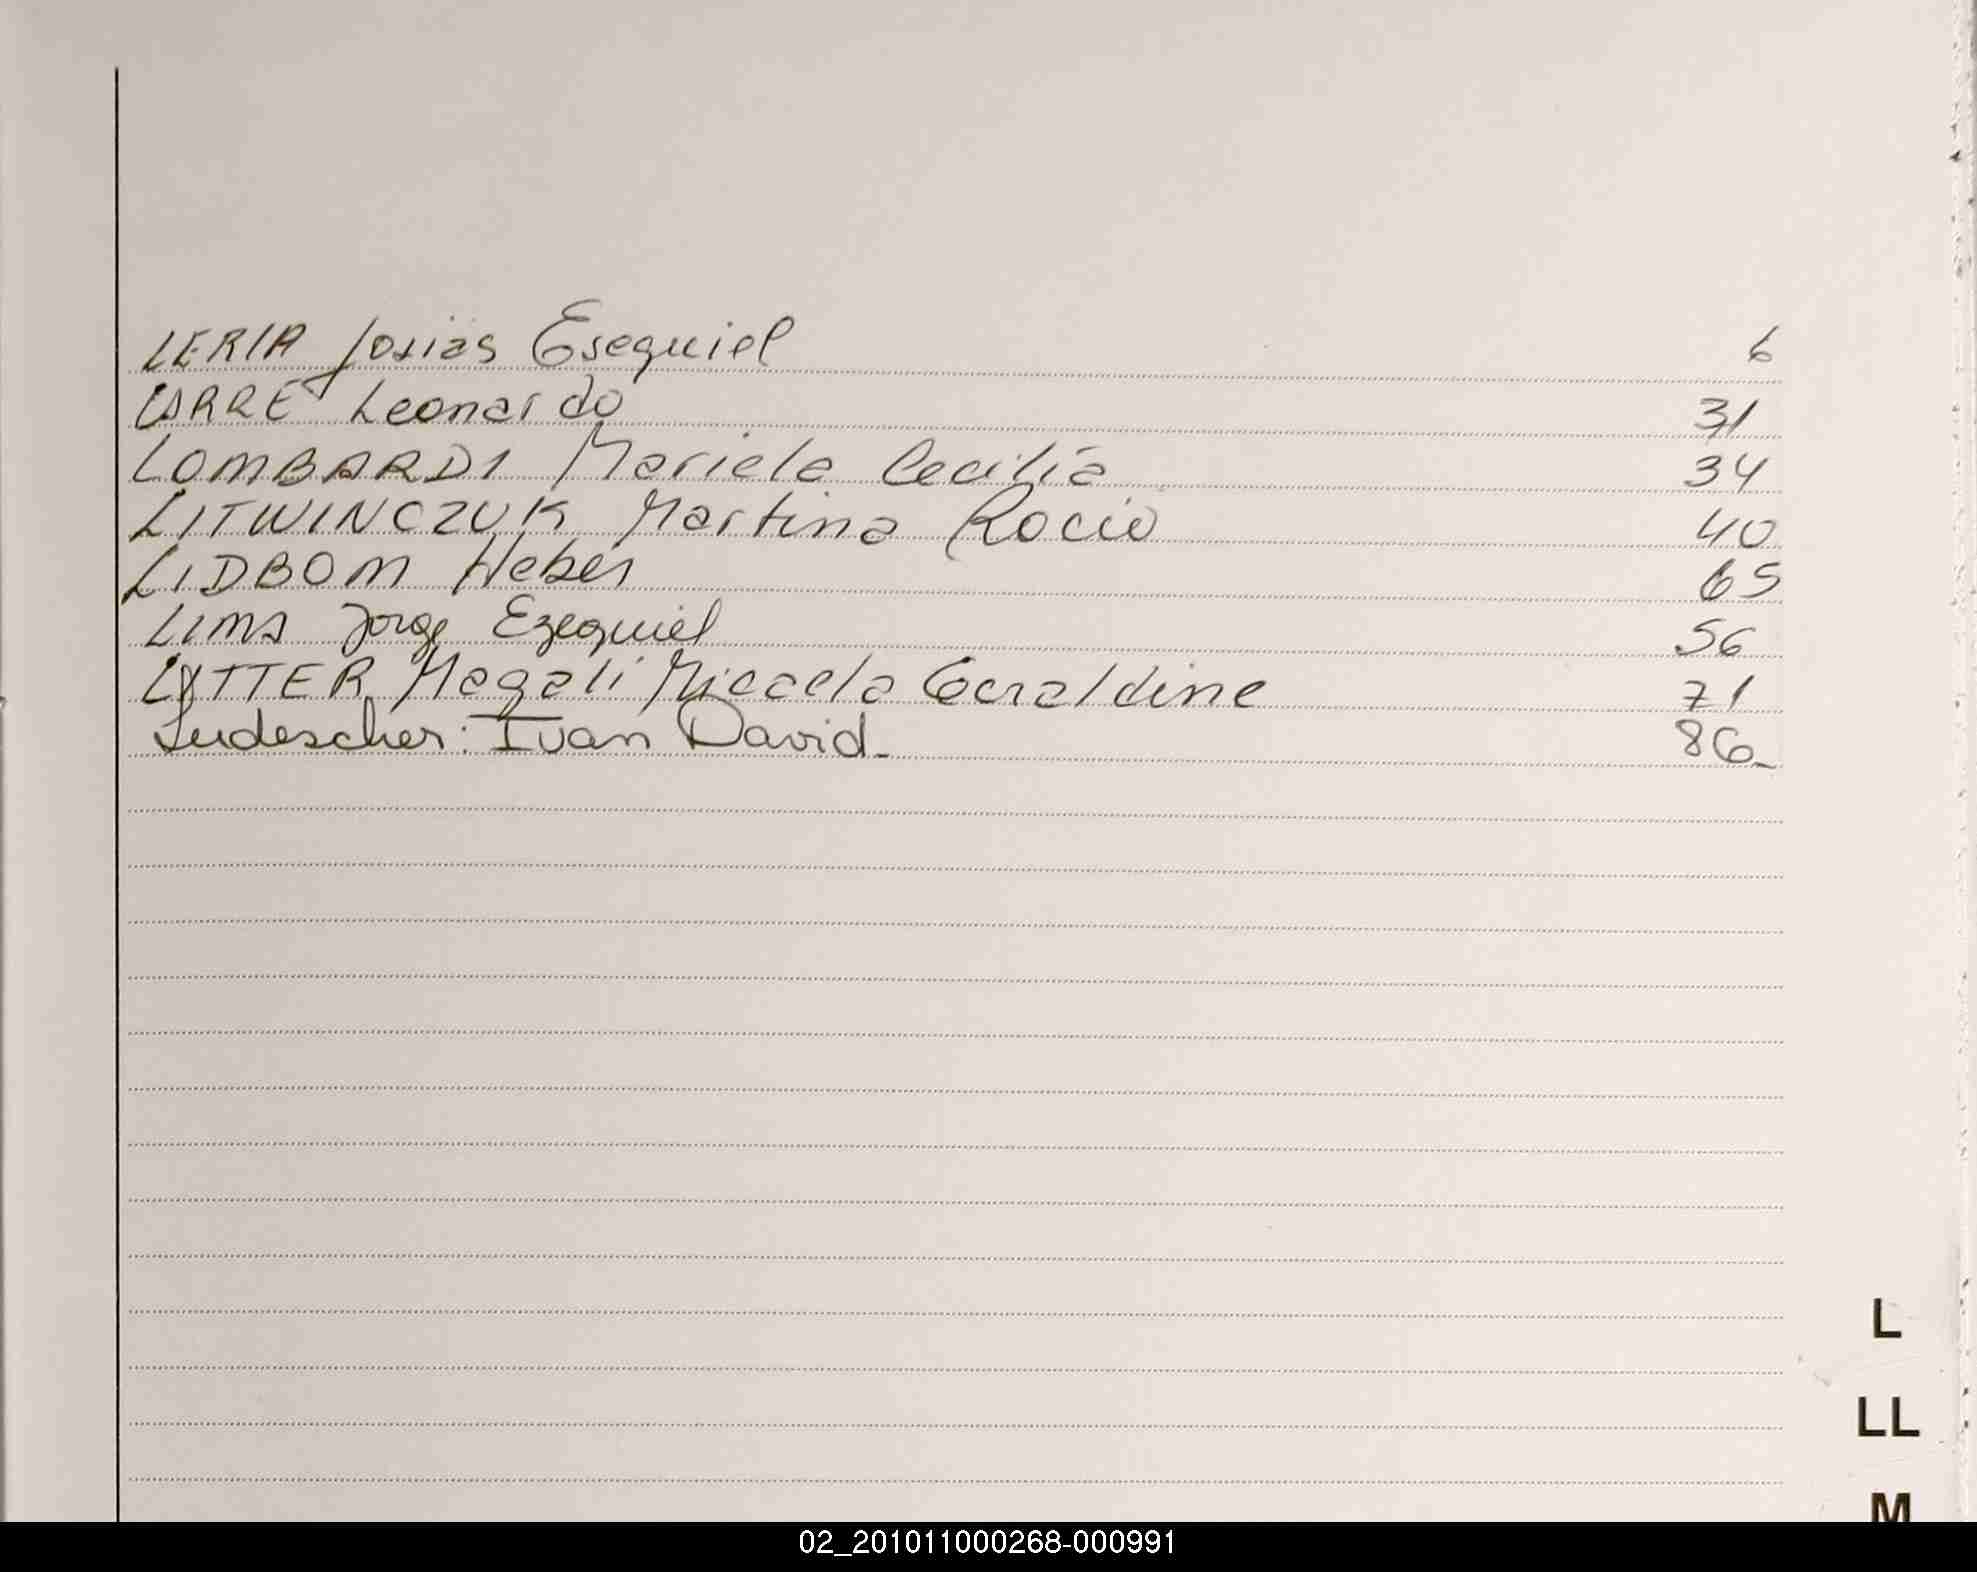 LERIA Josias Esequiel 6
LARRE Leonardo 31
LOMBARDI Mariela Cecilia 34
LITWINCZUK Martina Rocio 40
LIDBOM Heber 65
LIMA Jorge Ezequiel 56
LYTTER Magali Micaela Geraldine 71
Ludescher: Ivan David_ 86_
L
LL
M
02_201011000268-000991